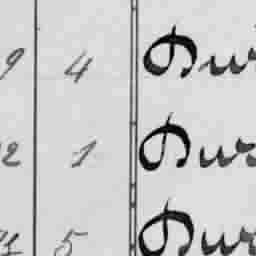 9 4 Dur
2 1 Dur
5 Dur